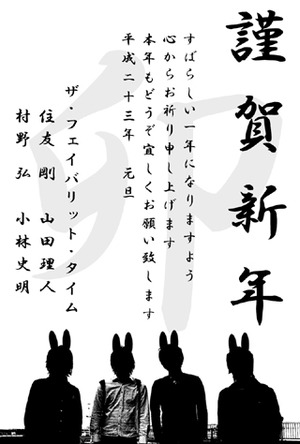 謹賀新年
すばらしい一年になりますよう
心からお祈り申し上げます
本年もどうぞ宜しくお願い致します
平成二十三年　元旦
卯
ザ・フェイバリット・タイム
住友　剛　山田理人
村野　弘　小林史明